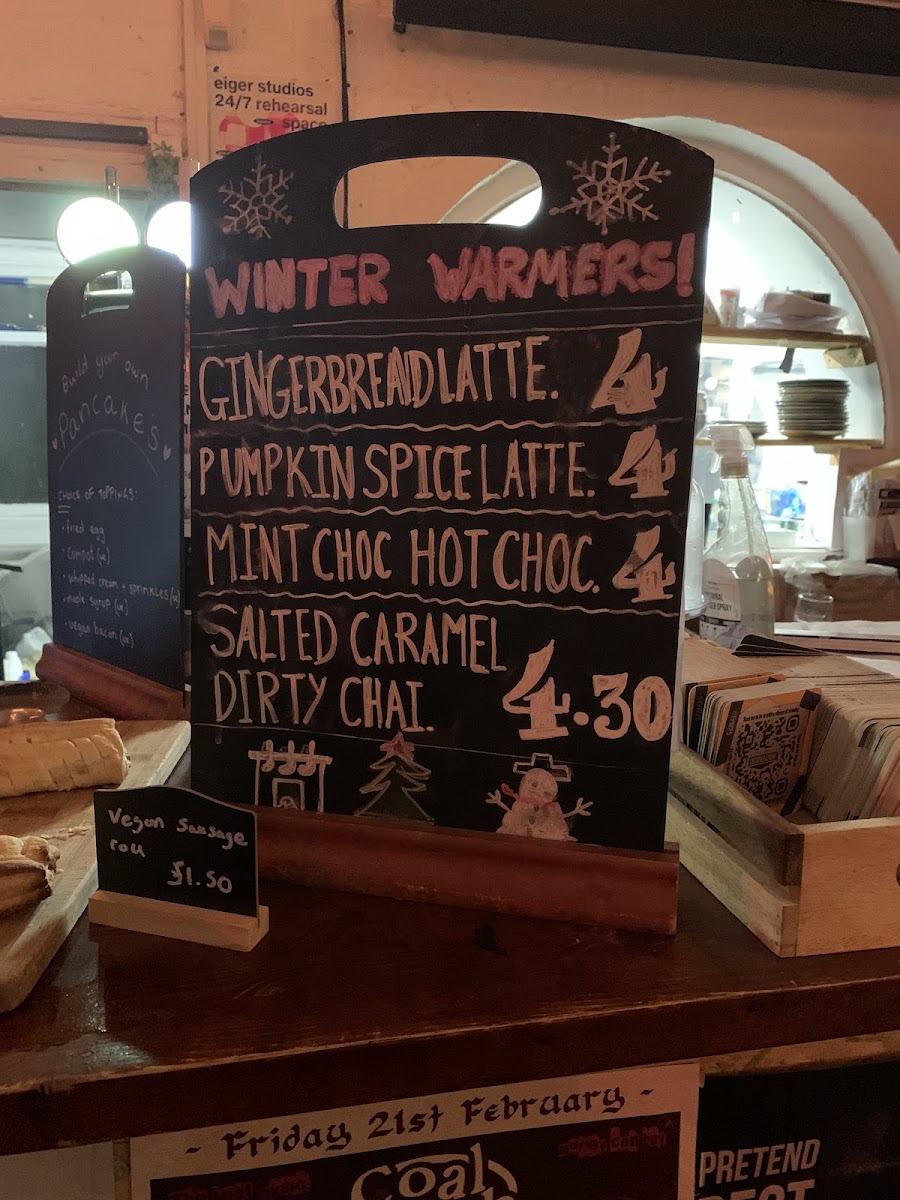 eiger studios
24/7 rehearsal
space
WINTER WARMERS!
GINGERBREAD LATTE. 4
PUMPKIN SPICE LATTE. 4
MINT CHOC HOT CHOC. 4
SALTED CARAMEL
DIRTY CHAI. 4.30
Build your own
Pancake's
CHOICE OF TOPPINGS:
• fried egg
• Compot (ve)
• whipped cream + sprinkles (ve)
• maple syrup (ve)
• vegan bacon (ve)
Vegan Sausage
roll
£1.50
- Friday 21st February -
Coal
PRETEND